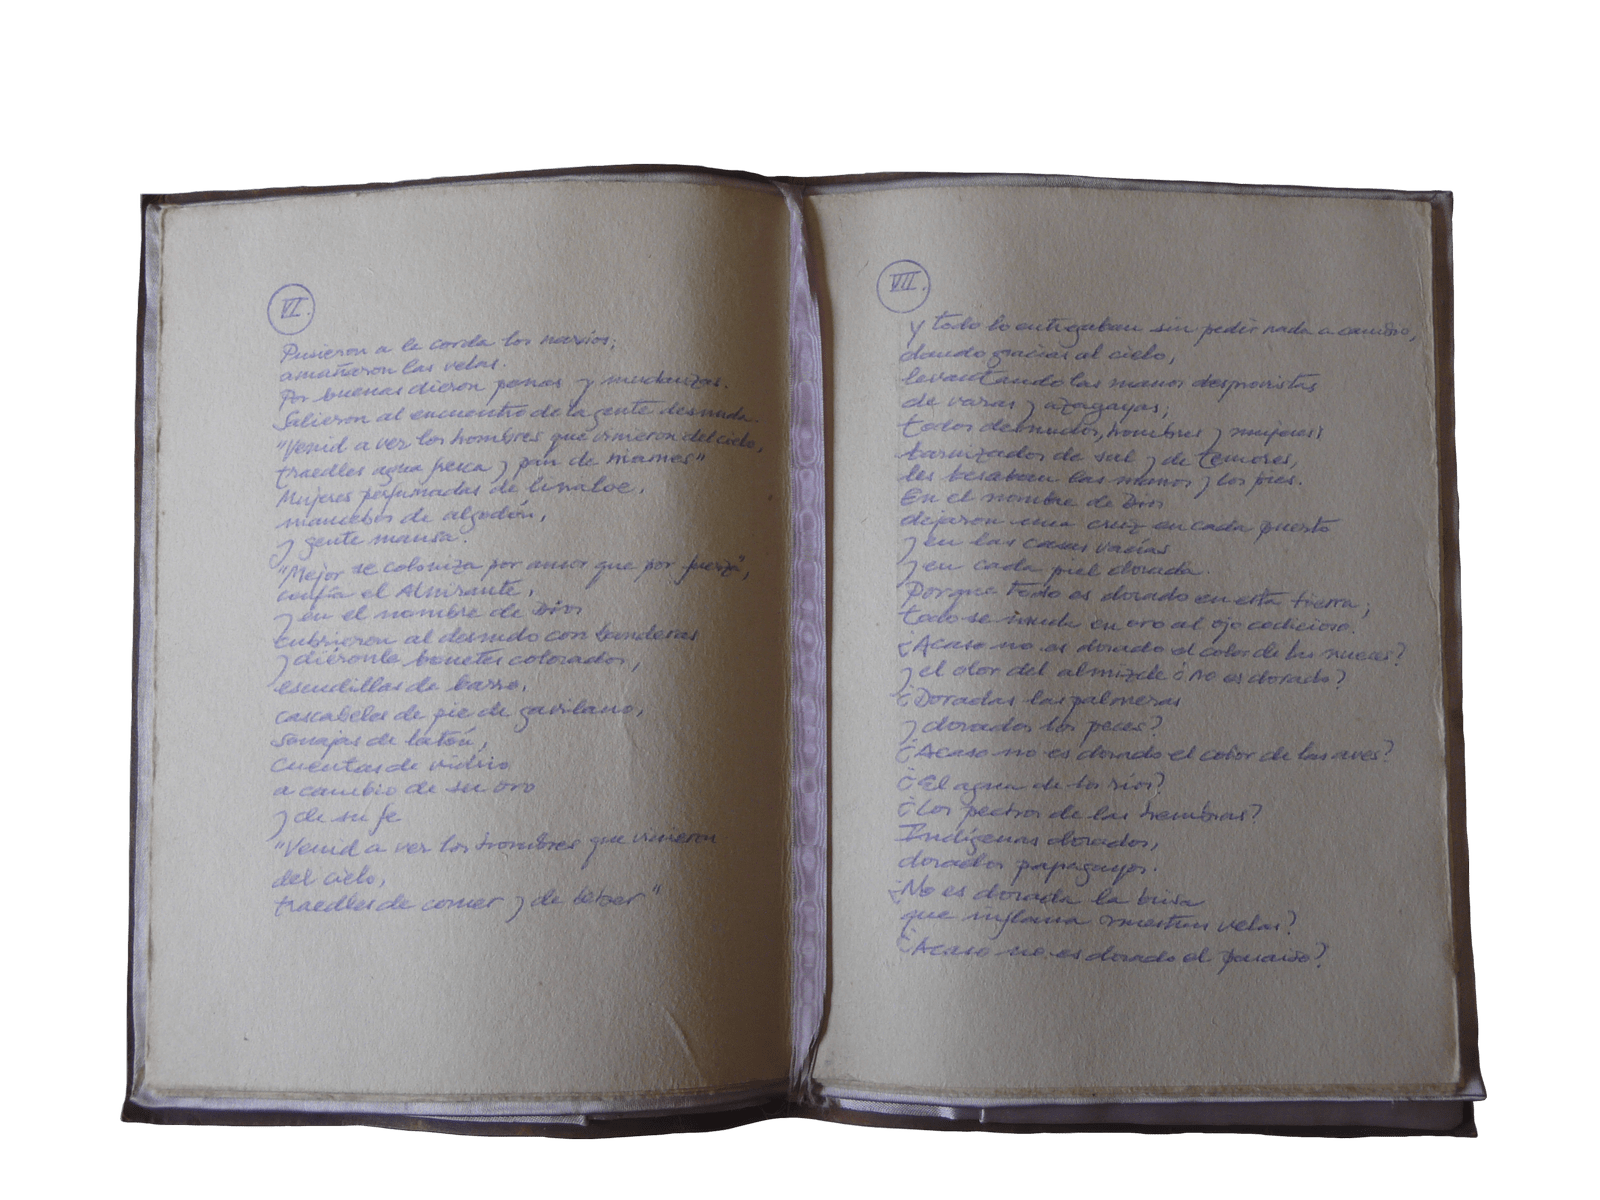 VI.
Pusieron a la corda los navíos;
amañaron las velas.
Por buenas dieron penas y mudanzas.
Salieron al encuentro de la gente desnuda.
"Venid a ver los hombres que vinieron del cielo,
traedles agua fresca y pan de niames"
Mujeres perfumadas de linaloe,
mancebos de algodón,
y gente mansa.
"Mejor se coloniza por amor que por fuerza",
confía el Almirante,
y en el nombre de Dios
cubrieron al desnudo con banderas
y diéronle bonetes colorados,
escudillas de barro,
cascabeles de pie de gavilano,
sonajas de latón,
cuentas de vidrio
a cambio de su oro
y de su fe
"Venid a ver los hombres que vinieron
del cielo,
traedles de comer y de beber"
VII.
Y todo lo entregaban sin pedir nada a cambio,
dando gracias al cielo,
levantando las manos desprovistas
de varas y azagayas;
todos desnudos, hombres y mujeres
barnizados de sal y de temores,
les besaban las manos y los pies.
En el nombre de Dios
dejaron una cruz en cada puerto
y en las casas vacías
y en cada piel dorada.
Porque todo es dorado en esta tierra;
todo se funde en oro al ojo codicioso.
¿Acaso no es dorado el color de las nueces?
y el olor del almizcle ¿no es dorado?
¿Doradas las palmeras
y dorados los peces?
¿Acaso no es dorado el color de las aves?
¿El agua de los ríos?
¿Los pechos de las hembras?
Indígenas dorados,
dorados papagayos.
¿No es dorada la brisa
que inflama nuestras velas?
¿Acaso no es dorado el paraíso?